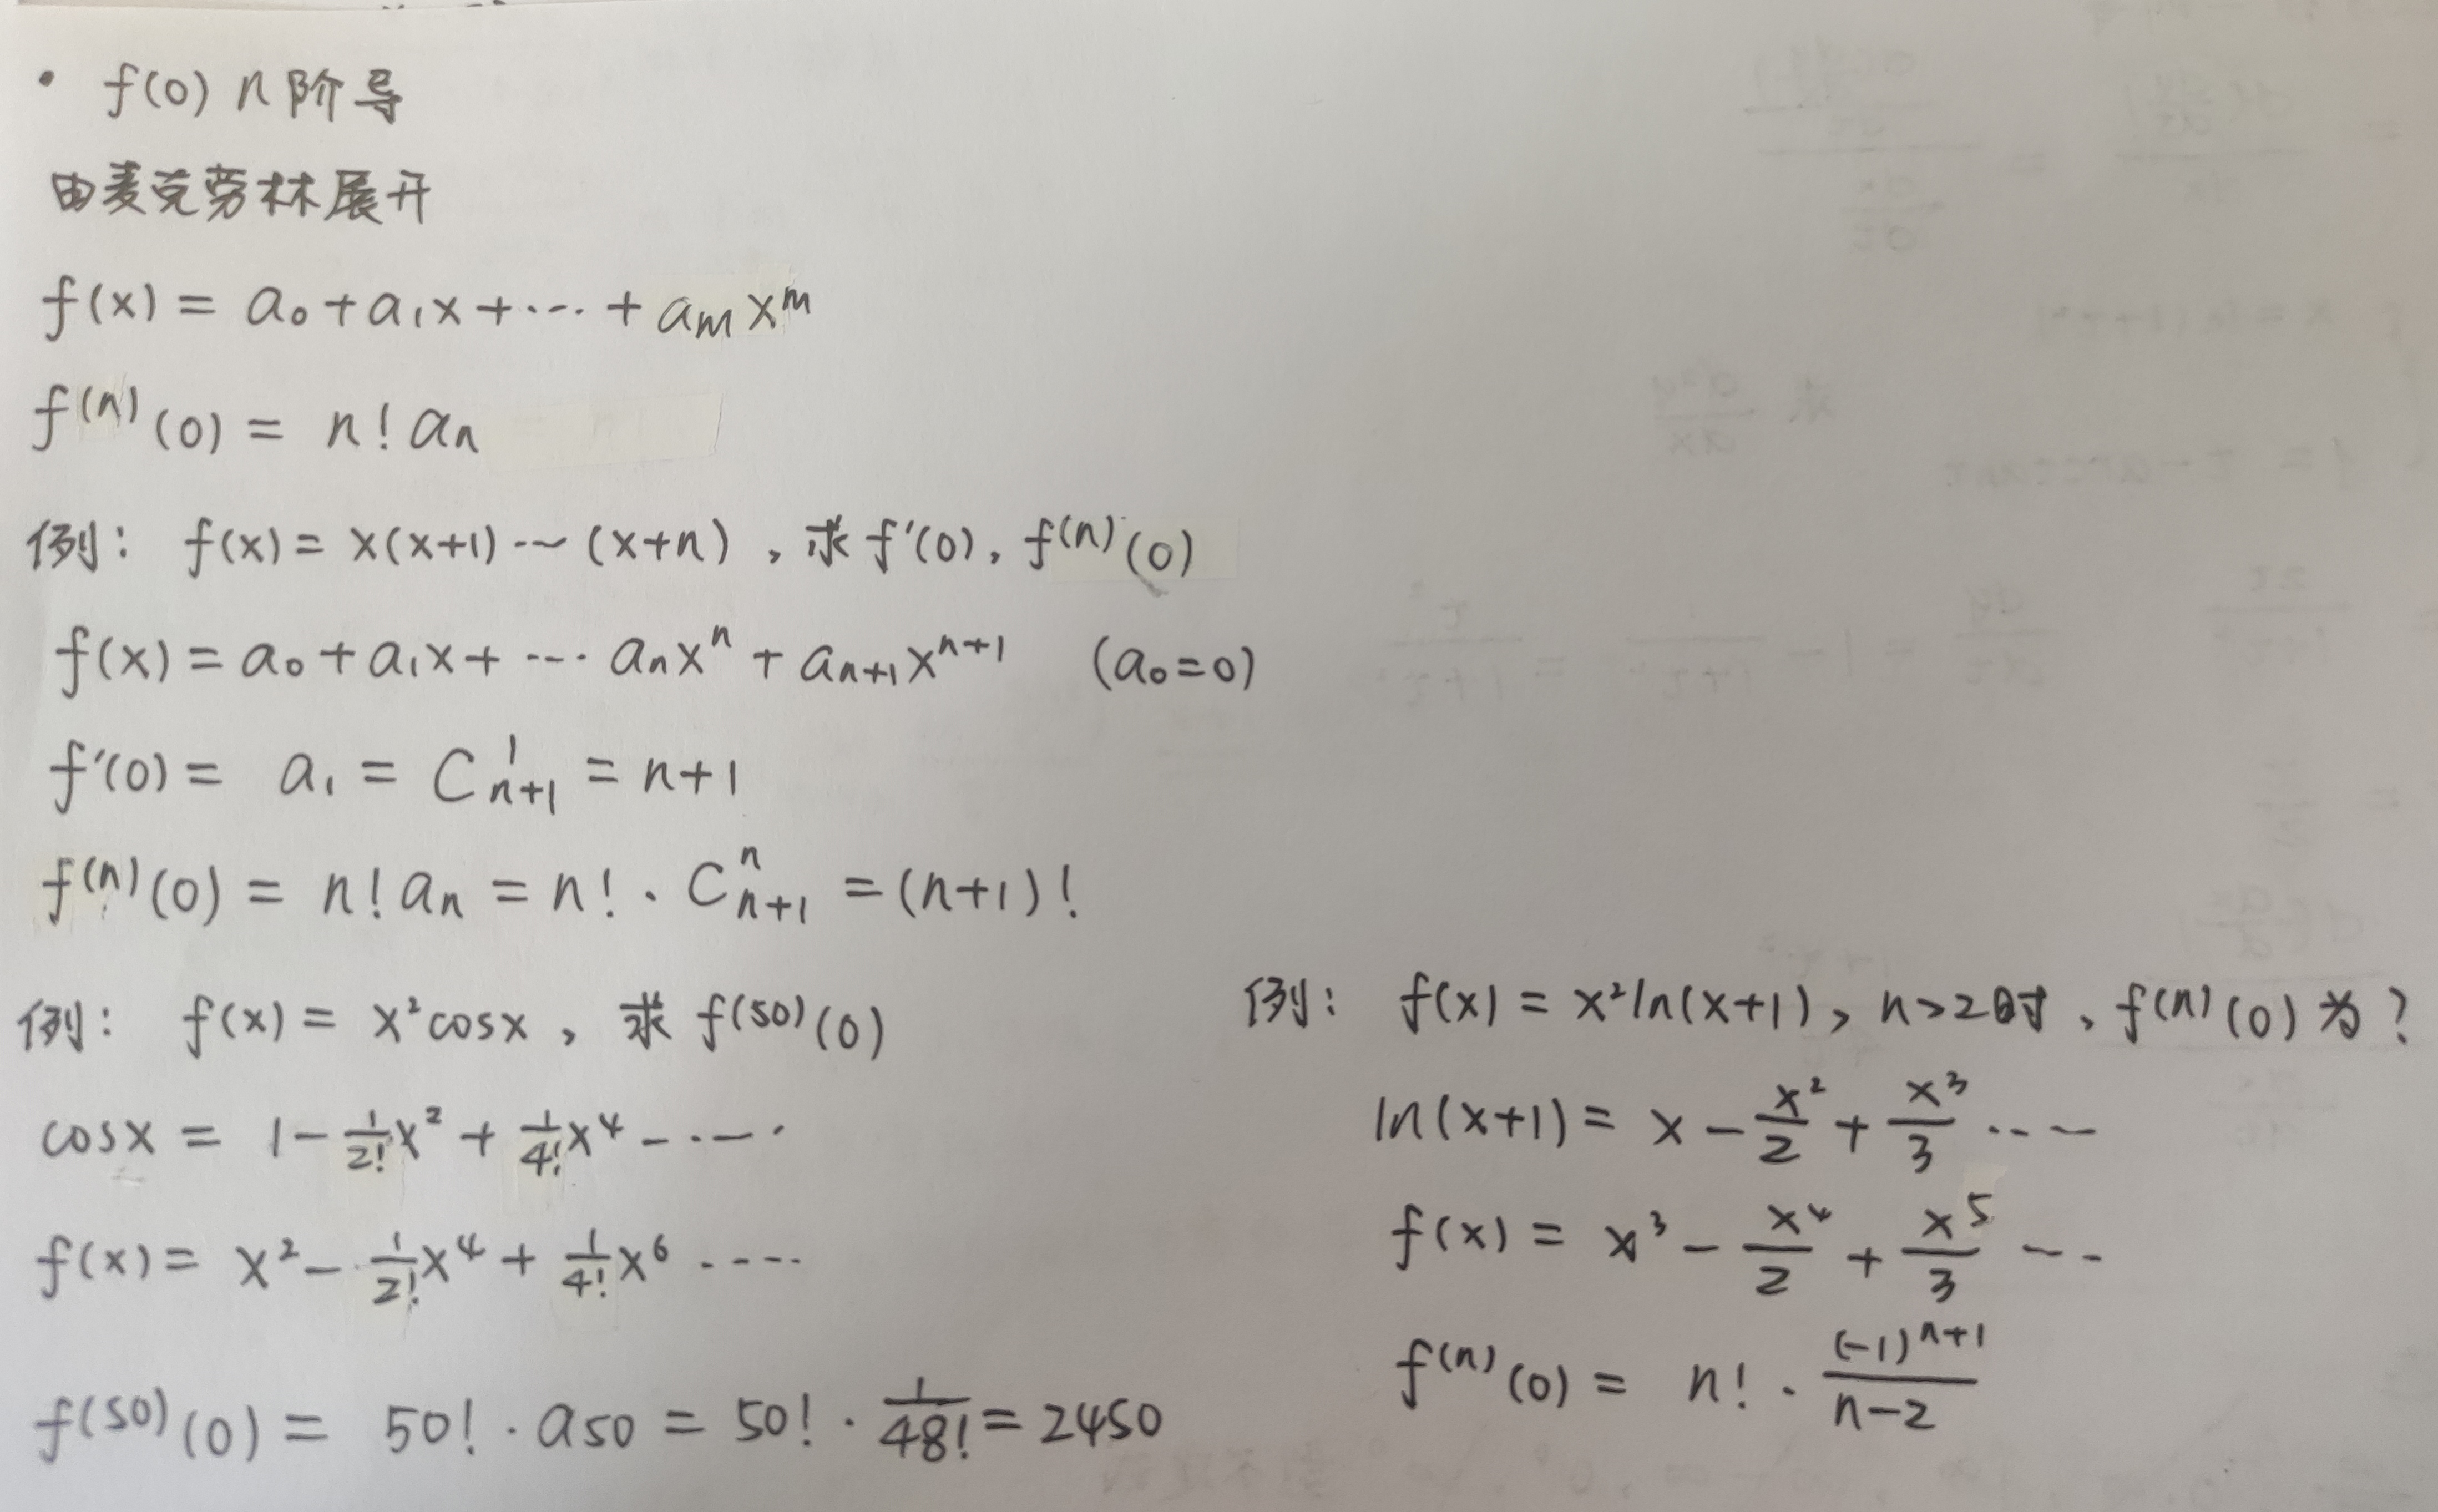 · f(0) n 阶导
由麦克劳林展开
f(x) = a₀ + a₁x + ··· + aₘxᵐ
f⁽ⁿ⁾(0) = n! aₙ
例: f(x) = x(x+1) ··· (x+n) , 求 f'(0), f⁽ⁿ⁾(0)
f(x) = a₀ + a₁x + ··· aₙxⁿ + aₙ₊₁xⁿ⁺¹ (a₀=0)
f'(0) = a₁ = C¹ₙ₊₁ = n+1
f⁽ⁿ⁾(0) = n! aₙ = n! · Cⁿₙ₊₁ = (n+1)!
例: f(x) = x²cosx , 求 f⁽⁵⁰⁾(0)
cosx = 1 - 1/2! x² + 1/4! x⁴ - ····
f(x) = x² - 1/2! x⁴ + 1/4! x⁶ ····
f⁽⁵⁰⁾(0) = 50! · a₅₀ = 50! · 1/48! = 2450
例: f(x) = x²ln(x+1), n>2时, f⁽ⁿ⁾(0) 为?
ln(x+1) = x - x²/2 + x³/3 ···
f(x) = x³ - x⁴/2 + x⁵/3 ···
f⁽ⁿ⁾(0) = n! · (-1)ⁿ⁺¹/(n-2)